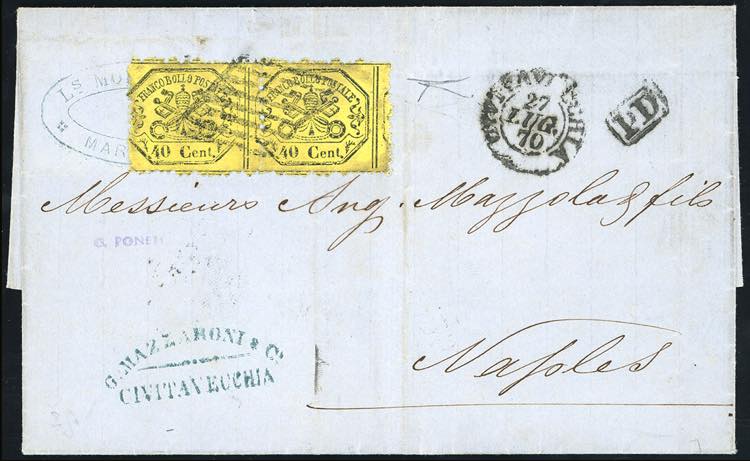 LS MO
MAR
FRANCO BOLLO POSTALE
40 Cent.
FRANCO BOLLO POSTALE
40 Cent.
CIVITAVECCHIA
27
LUG.
70
P.D.
Messieurs Aug. Mazzola & fils
G. PONE
G. MAZZARONI & C.
CIVITAVECCHIA
Naples